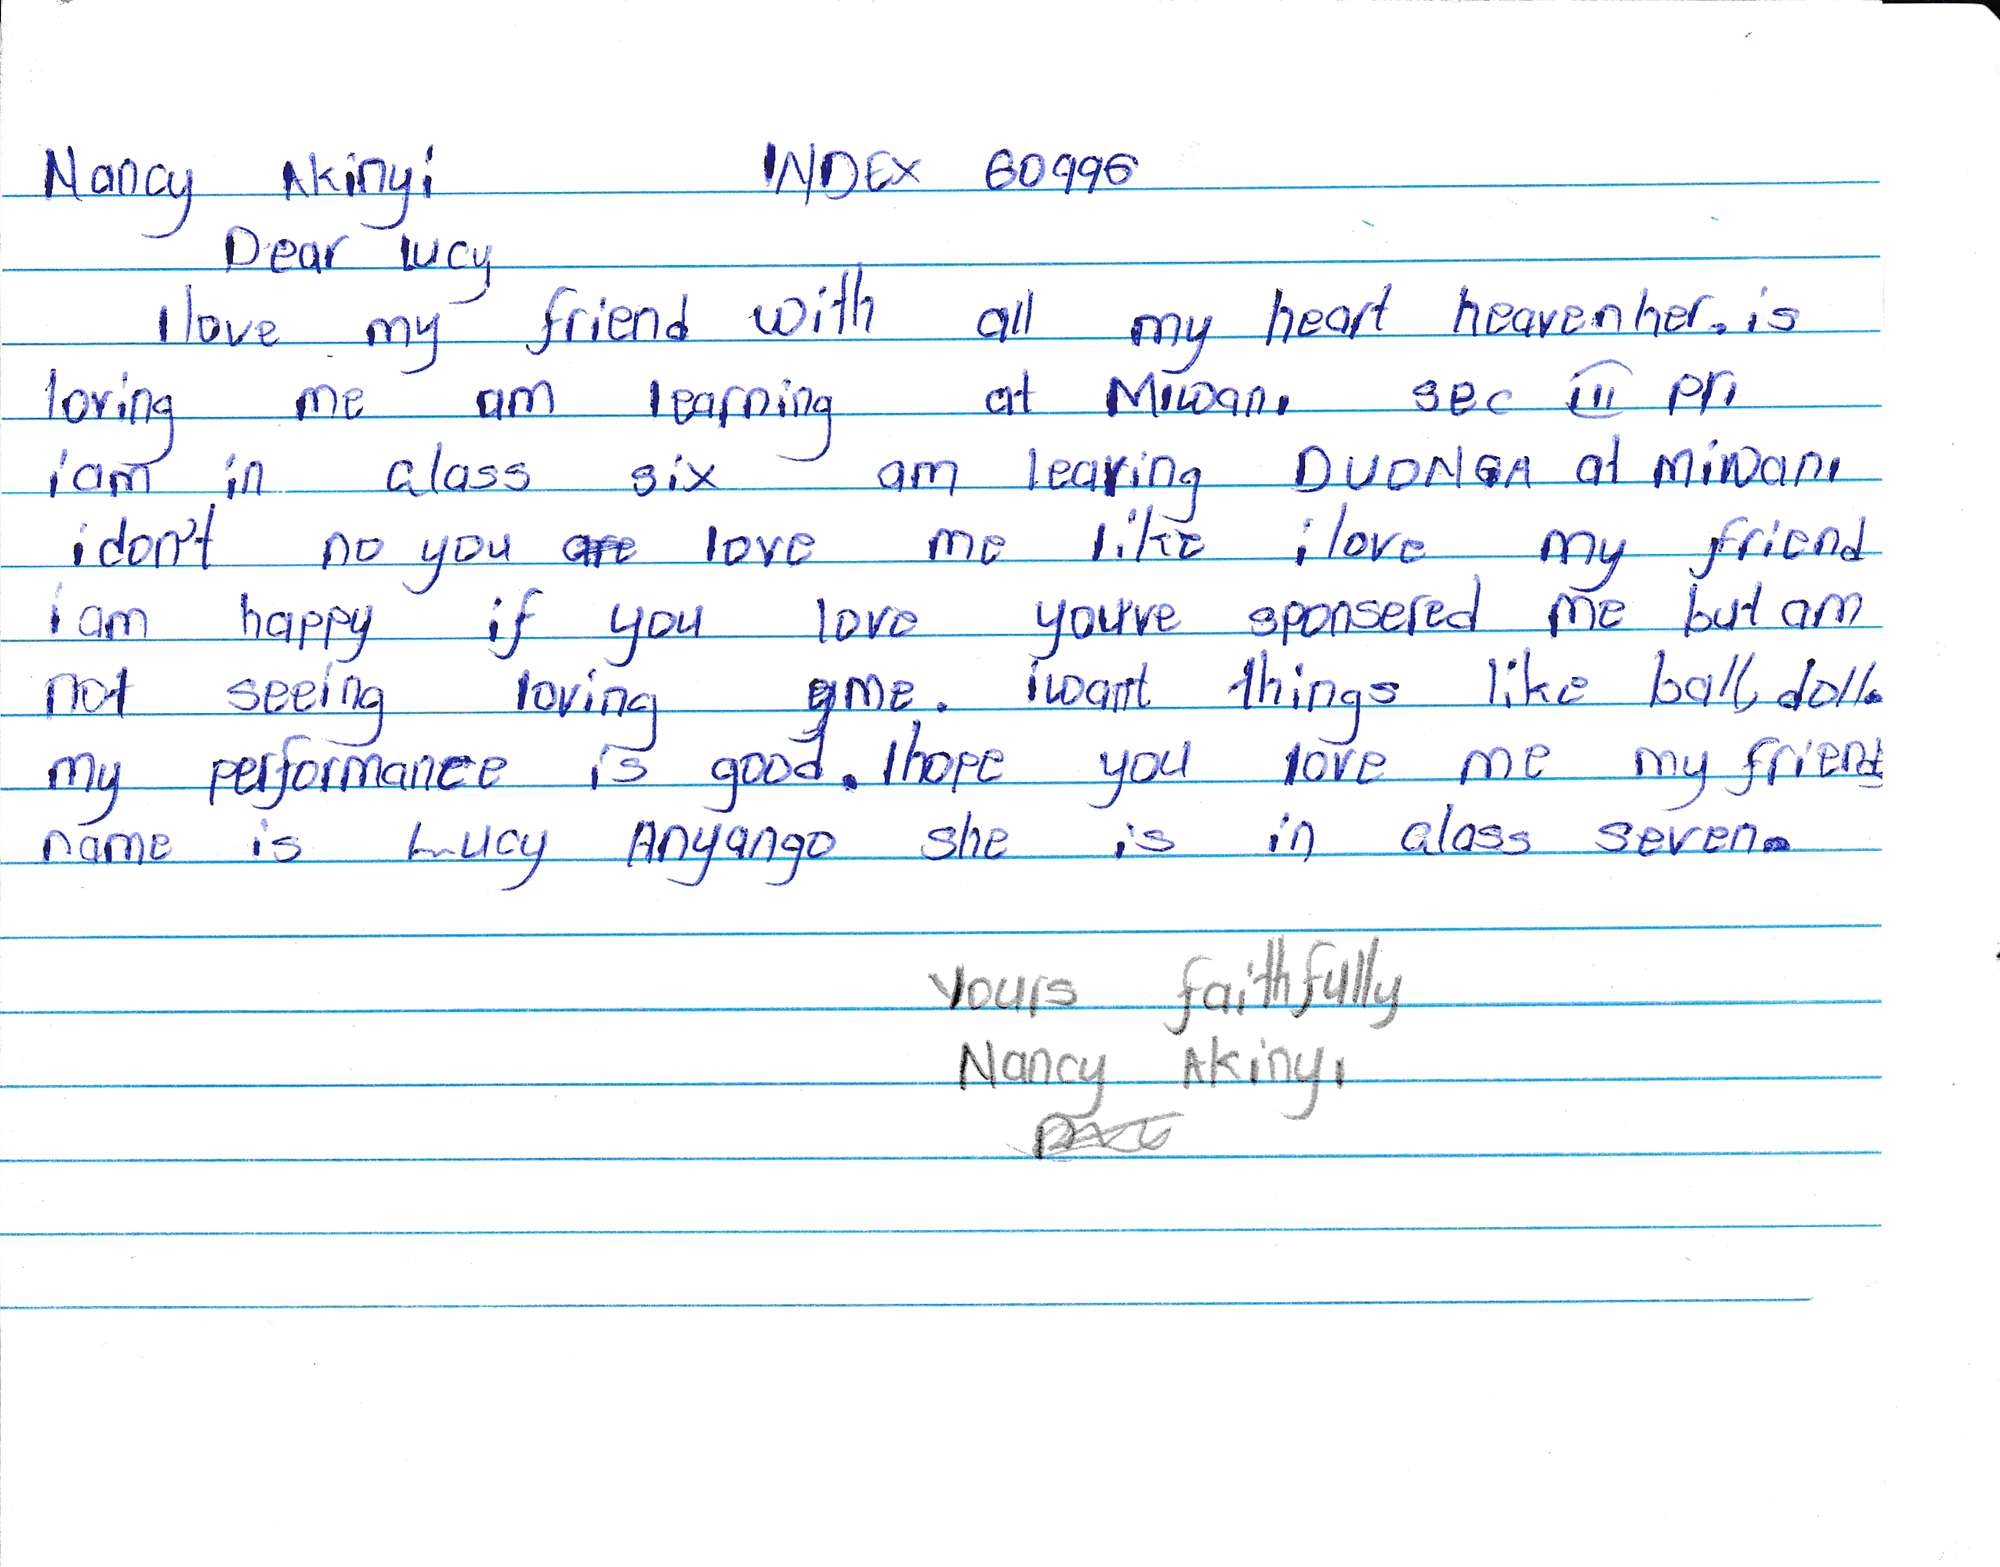 Nancy Akinyi INDEX 60996
Dear Lucy
I love my friend with all my heart heavenher. is
loving me am learning at Miwani sec III pri
i am in class six am leaving DUONGA at Miwani
i don't no you are love me like i love my friend
i am happy if you love you've sponsered me but am
not seeing loving me. i want things like ball, doll.
my performance is good. I hope you love me my friend
name is Lucy Anyango she is in class seven.
Yours faithfully
Nancy Akinyi